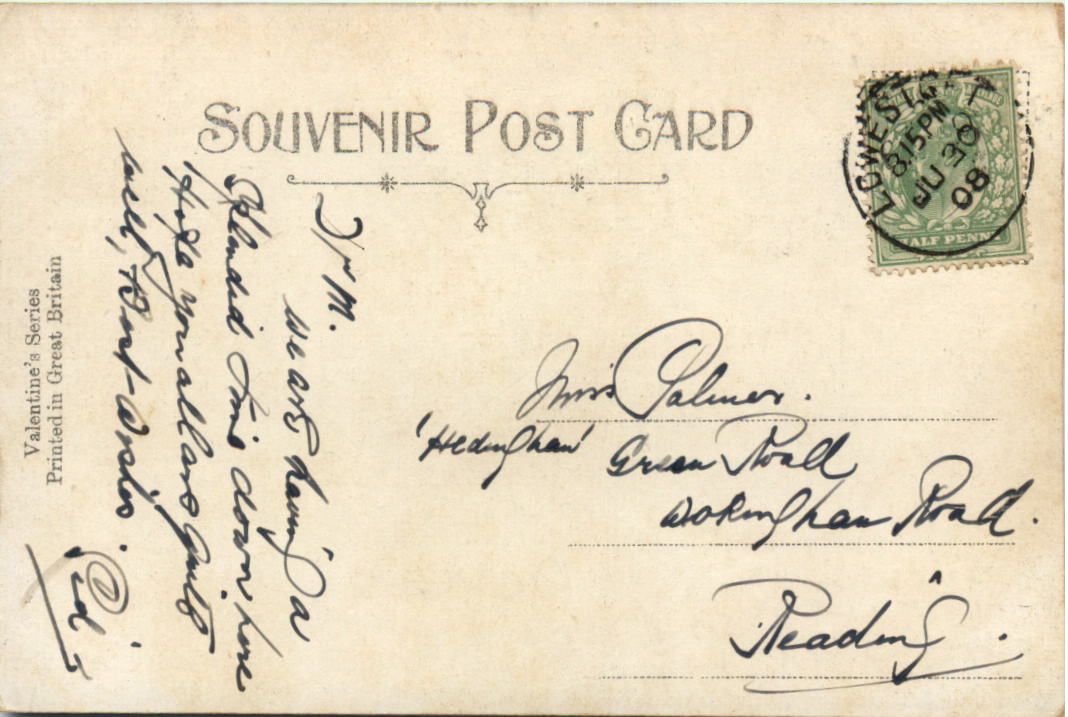 SOUVENIR POST CARD
LOWESTOFT
8.15 PM
JU 30
08
HALF PENNY
D'r M.
We are having a
Splendid time down here
Hope you all are quite
well, Best-wishes.
Miss Palmer.
'Hedingham' Green Road
Wokingham Road.
Reading.
Valentine's Series
Printed in Great Britain